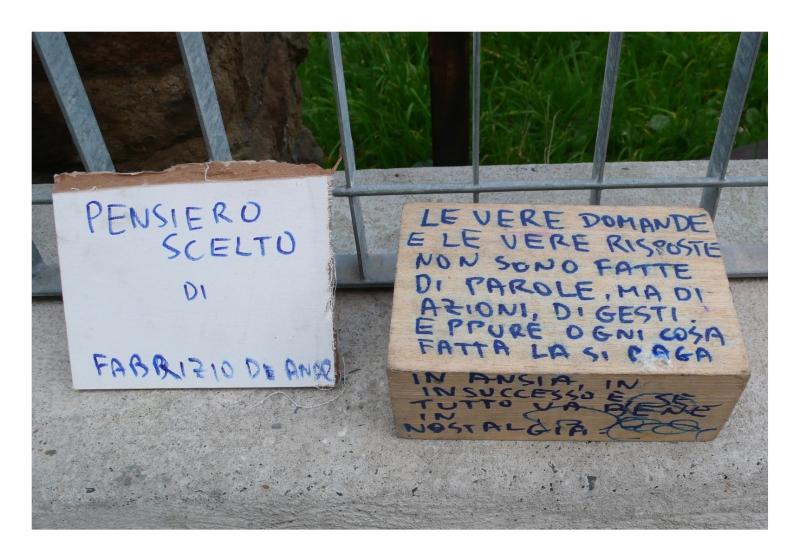 PENSIERO
SCELTO
DI
FABRIZIO DE ANDR
LE VERE DOMANDE
E LE VERE RISPOSTE
NON SONO FATTE
DI PAROLE, MA DI
AZIONI, DI GESTI.
EPPURE OGNI COSA
FATTA LA SI PAGA
IN ANSIA, IN
INSUCCESSO E SE
TUTTO VA BENE
IN
NOSTALGIA